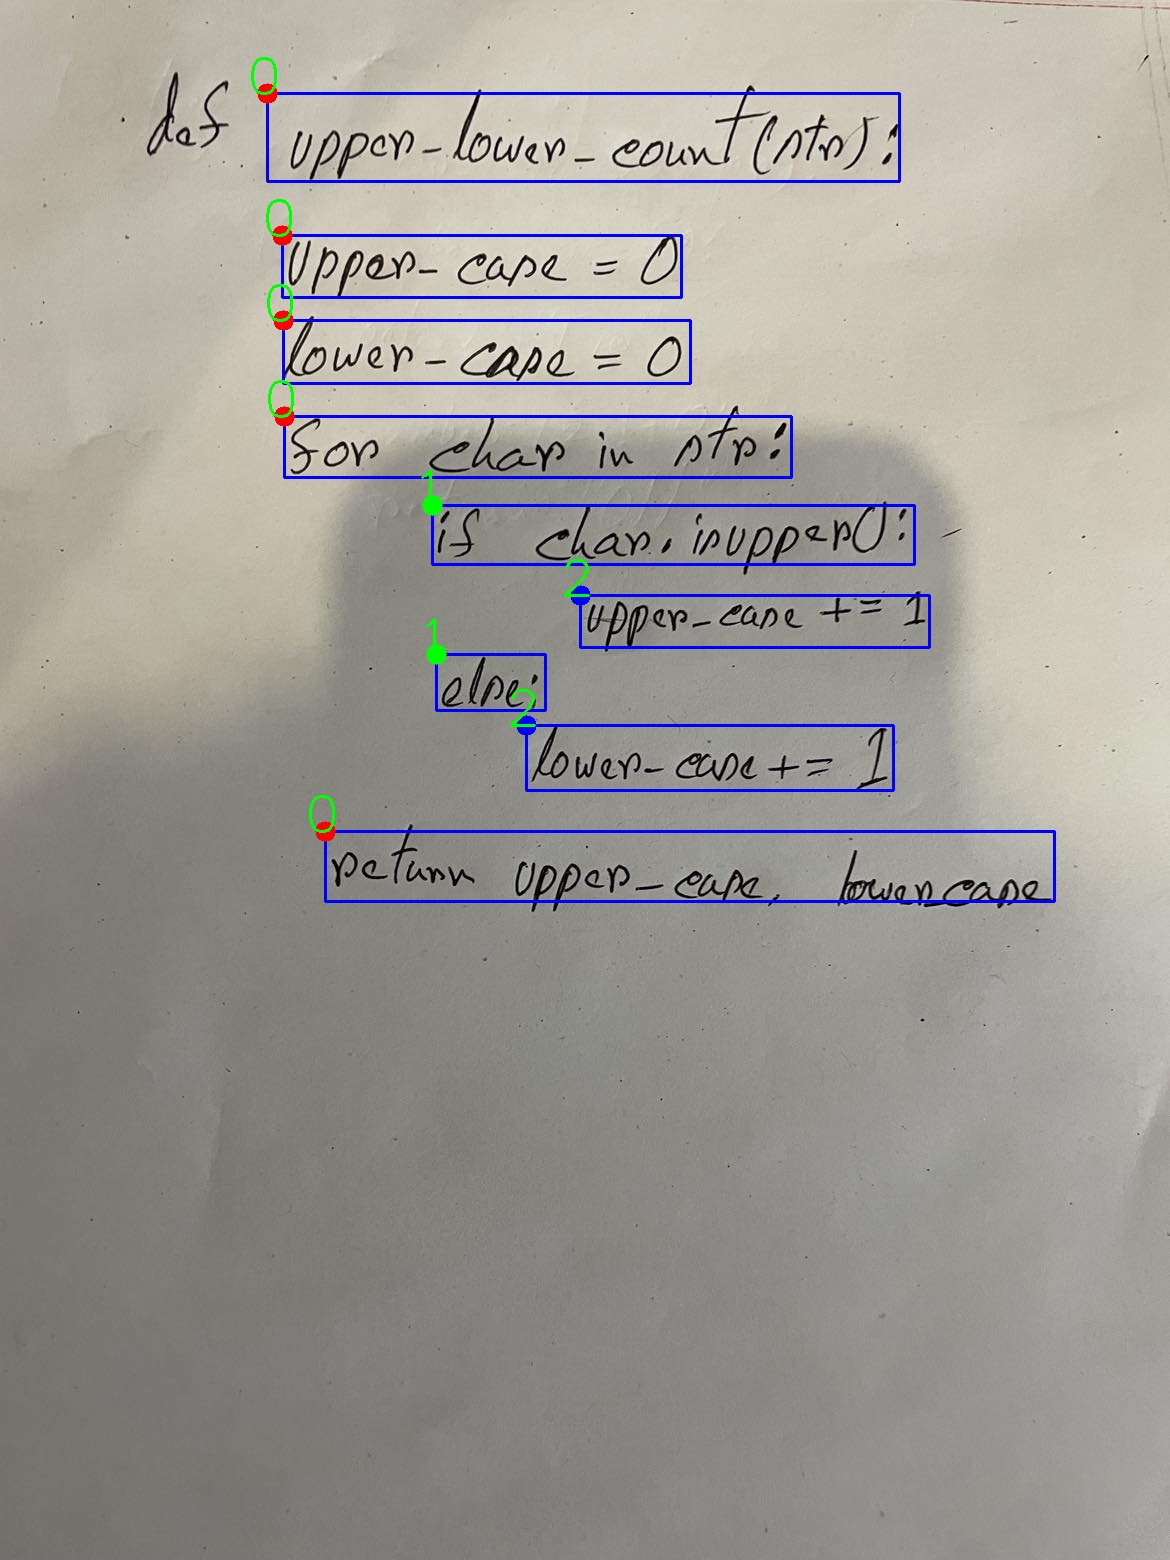 def upper_lower_count(str):
0
upper_case = 0
0
lower_case = 0
0
for char in str:
0
if char.isupper():
1
upper_case += 1
2
else:
1
lower_case += 1
2
return upper_case, lower_case
0